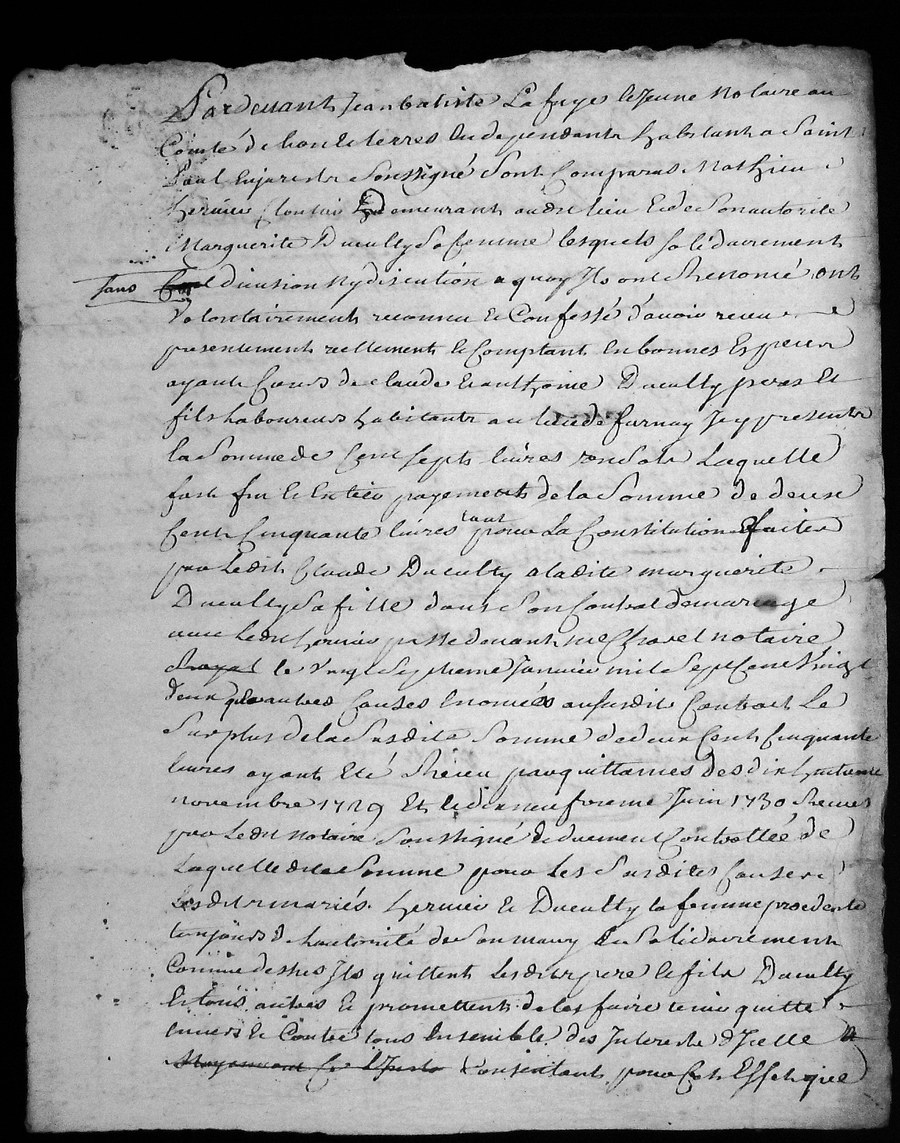 Pardevant Jean batiste Lafuye le Jeune Notaire au
Comté de lion & terres Independants habitant a Saint
Paul Enjarestr Soussigné Sont Comparus Mathieu
hernieu Demeurant audit lieu & de Son autorité
Marguerite Ducully Sa femme lesquels solidairement
sans division Ny discution a quoy Ils ont Renoncé ont
Volontairement reconnu & Confessé d'avoir receu
presentement reellement & Comptant En bonnes Especes
ayant Cours de claude & anthoine Ducully peres Et
fils Laboureurs habitants au lieu de furnay Icy presents
la Somme de Cent sept livres Laquelle
fait fin & Entier payement de la Somme de deux
Cent Cinquante livres tant pour La Constitution faite
par Ledit Claude Ducully a ladite marguerite
Ducully Sa fille dans Son Contrat de mariage
avec Ledit hernieu passé devant me Chavel notaire
Royal le Vingt Septieme Janvier mil Sept Cent Vingt
deux que autres Causes Enoncés au susdit Contrat Le
Surplus de la Susdite Somme de deux Cent Cinquante
livres ayant Eté Receu par quittances des dix huitieme
novembre 1729 Et le dixneufvieme Juin 1730 Receues
par Ledit notaire Soussigné & duement Controllée de
Laquelle dite Somme pour les Susdites Causes
Lesdits mariés hernieu & Ducully la femme procedante
toujours de Lautorité de Son mary & Solidairement
Comme dessus Ils quittent Lesdits pere & fils Ducully
Et tous autres & promettent de les faire tenir quitte
envers & Contre tous Ensemble des Interests d'Icelle
Moyennant Ce Consentants pour Cet Effet que